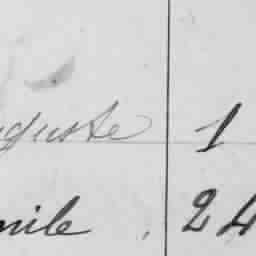 uguste 1
mile 24